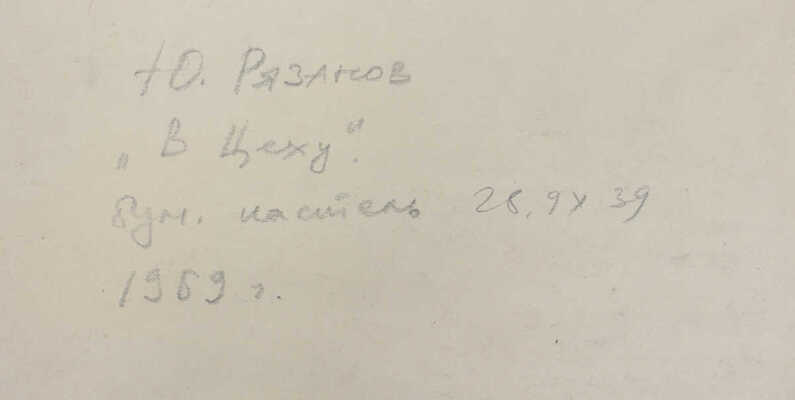 Ю. Рязанов
„В Цеху“.
бум. пастель 28,9х39
1969 г.